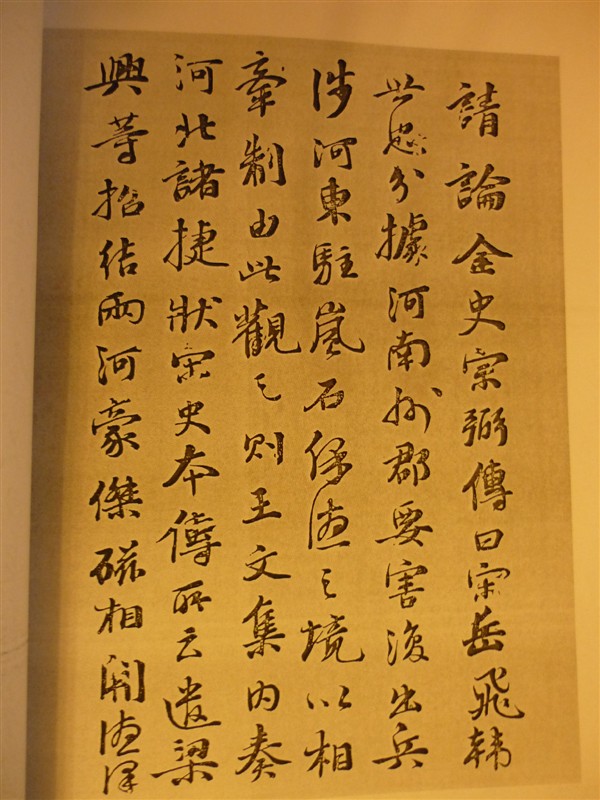 請論金史宗弼傳曰宋岳飛韓
世忠分據河南州郡要害復出兵
涉河東駐嵐石保德之境以相
牽制由此觀之則王文集內奏
河北諸捷狀宋史本傳所云遣梁
興等招結兩河豪傑磁相開德澤